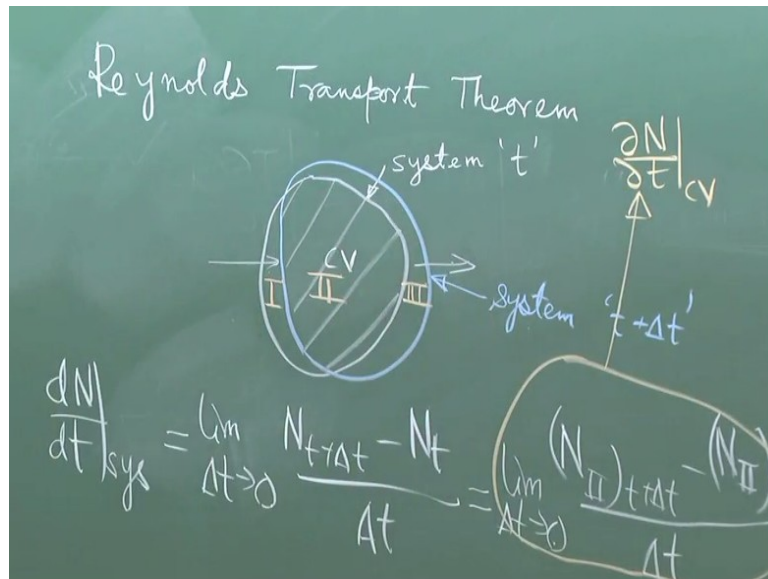 Reynolds Transport Theorem
system 't'
∂N/∂t|CV
CV
I II III
system 't+Δt'
dN/dt|sys = lim Δt→0 (N t+Δt − N t)/Δt = lim Δt→0 ((N II) t+Δt − (N II)/Δt